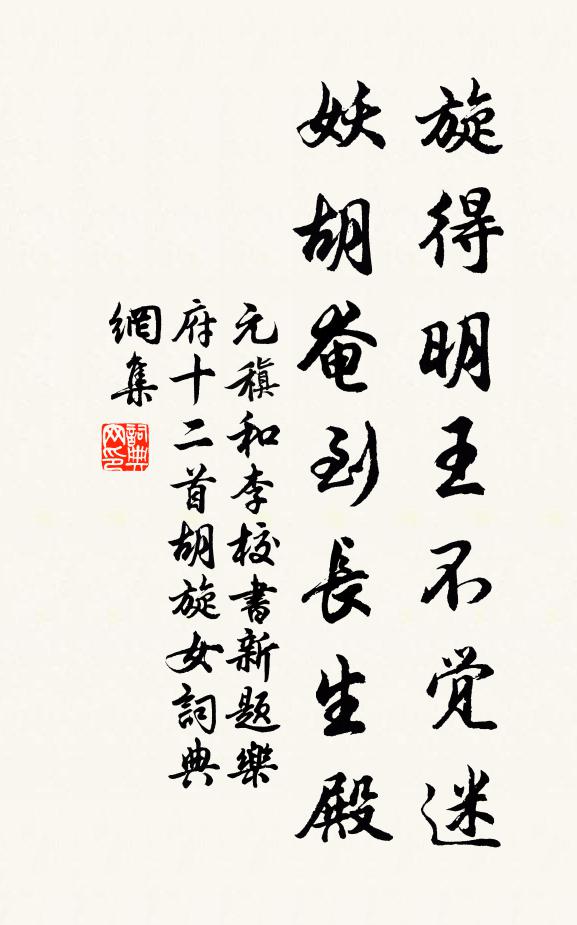 旋得明王不觉迷
妖胡奄到長生殿
元稹和李校書新题樂
府十二首胡旋女詞典
網集
詞典网印